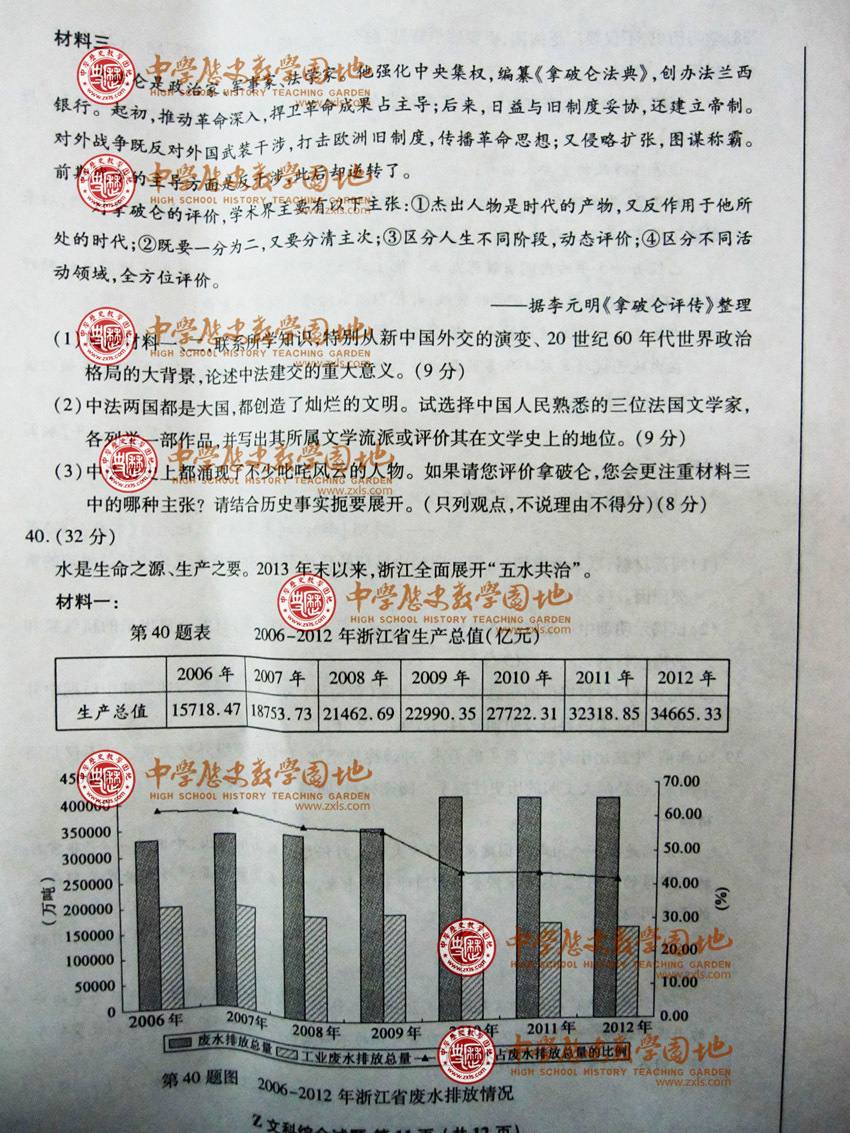 材料三
仑是政治家、军事家、法学家。他强化中央集权，编纂《拿破仑法典》，创办法兰西
银行。起初，推动革命深入，捍卫革命成果占主导；后来，日益与旧制度妥协，还建立帝制。
对外战争既反对外国武装干涉，打击欧洲旧制度，传播革命思想；又侵略扩张，图谋称霸。
前期 的主导方面是反干涉，此后却逆转了。
拿破仑的评价，学术界主要有以下主张：①杰出人物是时代的产物，又反作用于他所
处的时代；②既要一分为二，又要分清主次；③区分人生不同阶段，动态评价；④区分不同活
动领域，全方位评价。
——据李元明《拿破仑评传》整理
(1) 材料一、二，联系所学知识，特别从新中国外交的演变、20 世纪 60 年代世界政治
格局的大背景，论述中法建交的重大意义。(9 分)
(2)中法两国都是大国，都创造了灿烂的文明。试选择中国人民熟悉的三位法国文学家，
各列举一部作品，并写出其所属文学流派或评价其在文学史上的地位。(9 分)
(3)中 上都涌现了不少叱咤风云的人物。如果请您评价拿破仑，您会更注重材料三
中的哪种主张？请结合历史事实扼要展开。(只列观点，不说理由不得分)(8 分)
40.(32 分)
水是生命之源、生产之要。2013 年末以来，浙江全面展开“五水共治”。
材料一：
第 40 题表 2006-2012 年浙江省生产总值(亿元)
2006 年 2007 年 2008 年 2009 年 2010 年 2011 年 2012 年
生产总值 15718.47 18753.73 21462.69 22990.35 27722.31 32318.85 34665.33
400000
350000
300000
250000
200000
150000
100000
50000
0
(万吨)
70.00
60.00
50.00
40.00
30.00
20.00
10.00
0.00
(%)
2006 年 2007年 2008 年 2009 年 2011 年 2012 年
废水排放总量 工业废水排放总量 占废水排放总量的比例
第 40 题图 2006-2012 年浙江省废水排放情况
中学历史教学园地
HIGH SCHOOL HISTORY TEACHING GARDEN
www.zxls.com